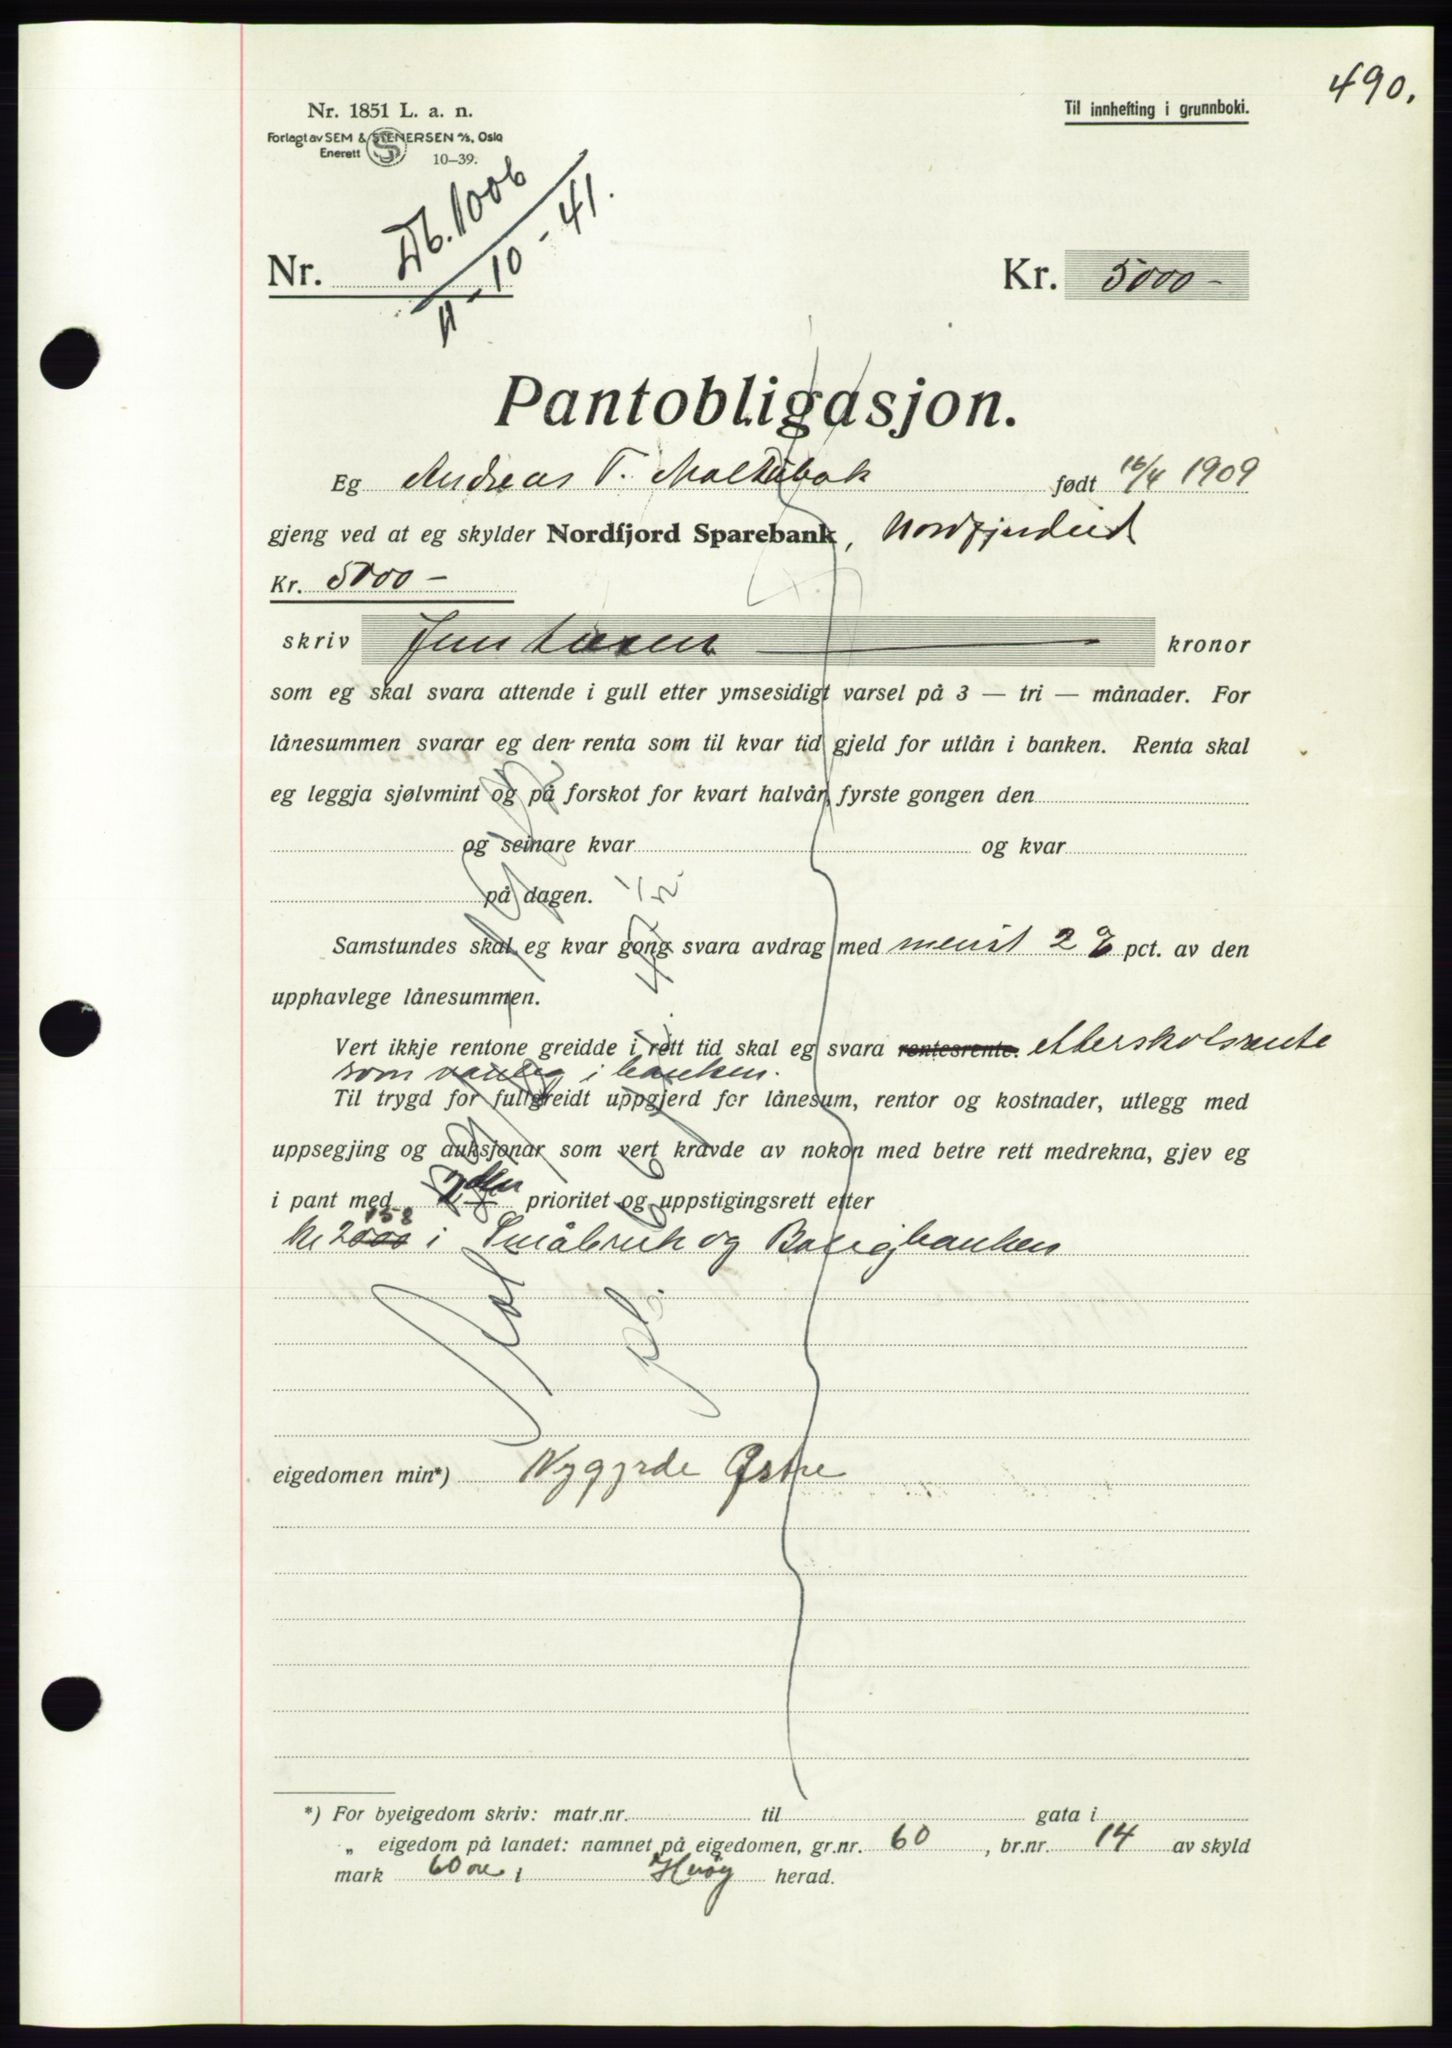 490.
Nr. 1851 L. a. n.
Til innhefting i grunnboki.
Forlagt av SEM & STENERSEN A/S, Oslo
Enerett S 10-39.
Nr. Db. 1006
11-10-41.
Kr. 5000-
Pantobligasjon.
Eg Andreas T. født 16/4 1909
gjeng ved at eg skylder Nordfjord Sparebank, Nordfjordeid
Kr. 5000-
skriv Fem tusen kronor
som eg skal svara attende i gull etter ymsesidigt varsel på 3 — tri — månader. For
lånesummen svarar eg den renta som til kvar tid gjeld for utlån i banken. Renta skal
eg leggja sjølvmint og på forskot for kvart halvår, fyrste gongen den
og seinare kvar og kvar
på dagen.
Samstundes skal eg kvar gong svara avdrag med minst 2 % pct. av den
upphavlege lånesummen.
Vert ikkje rentone greidde i rett tid skal eg svara rentesrente. etterskotsrente
som vanleg i banken.
Til trygd for fullgreidt uppgjerd for lånesum, rentor og kostnader, utlegg med
uppsegjing og auksjonar som vert kravde av nokon med betre rett medrekna, gjev eg
i pant med 2den prioritet og uppstigingsrett etter
158
kr 2000 i Småbruk og Bustigbanken
eigedomen min*) Nygjerde Østre
*) For byeigedom skriv: matr.nr. til gata i
„ eigedom på landet: namnet på eigedomen, gr.nr. 60, br.nr. 14 av skyld
mark 60 øre i Herøy herad.